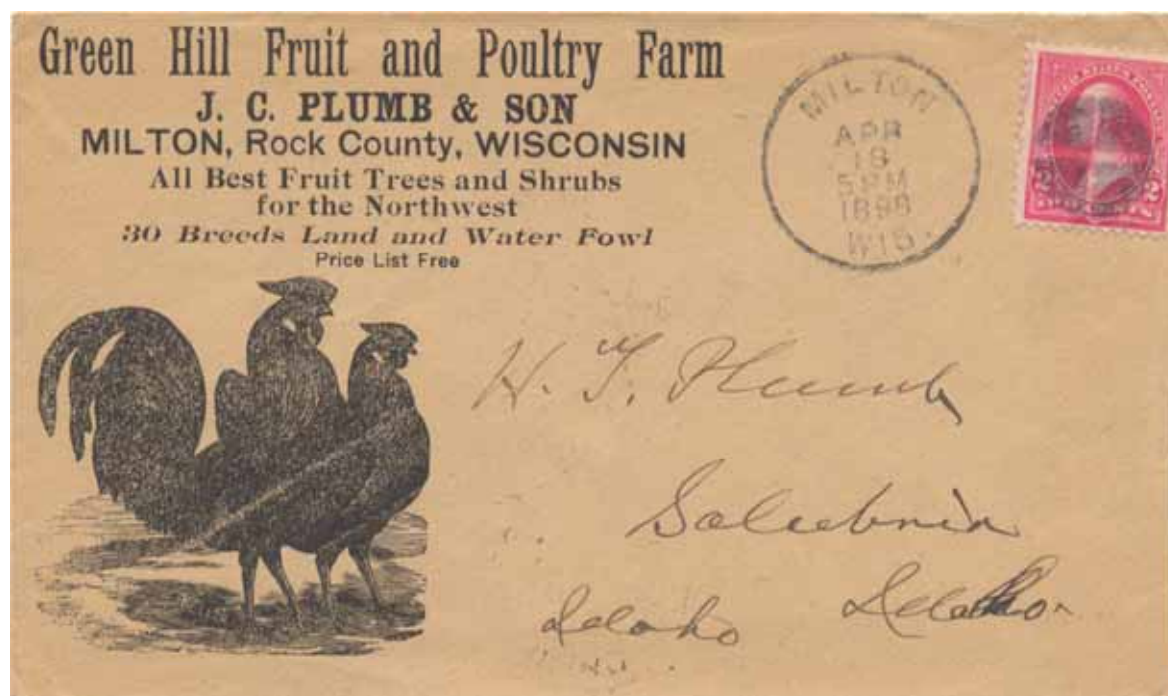 Green Hill Fruit and Poultry Farm
J. C. PLUMB & SON
MILTON, Rock County, WISCONSIN
All Best Fruit Trees and Shrubs
for the Northwest
30 Breeds Land and Water Fowl
Price List Free
MILTON
APR
18
5 PM
WIS.
2 2
H. T. Plumb
Salubria
Idaho Idaho